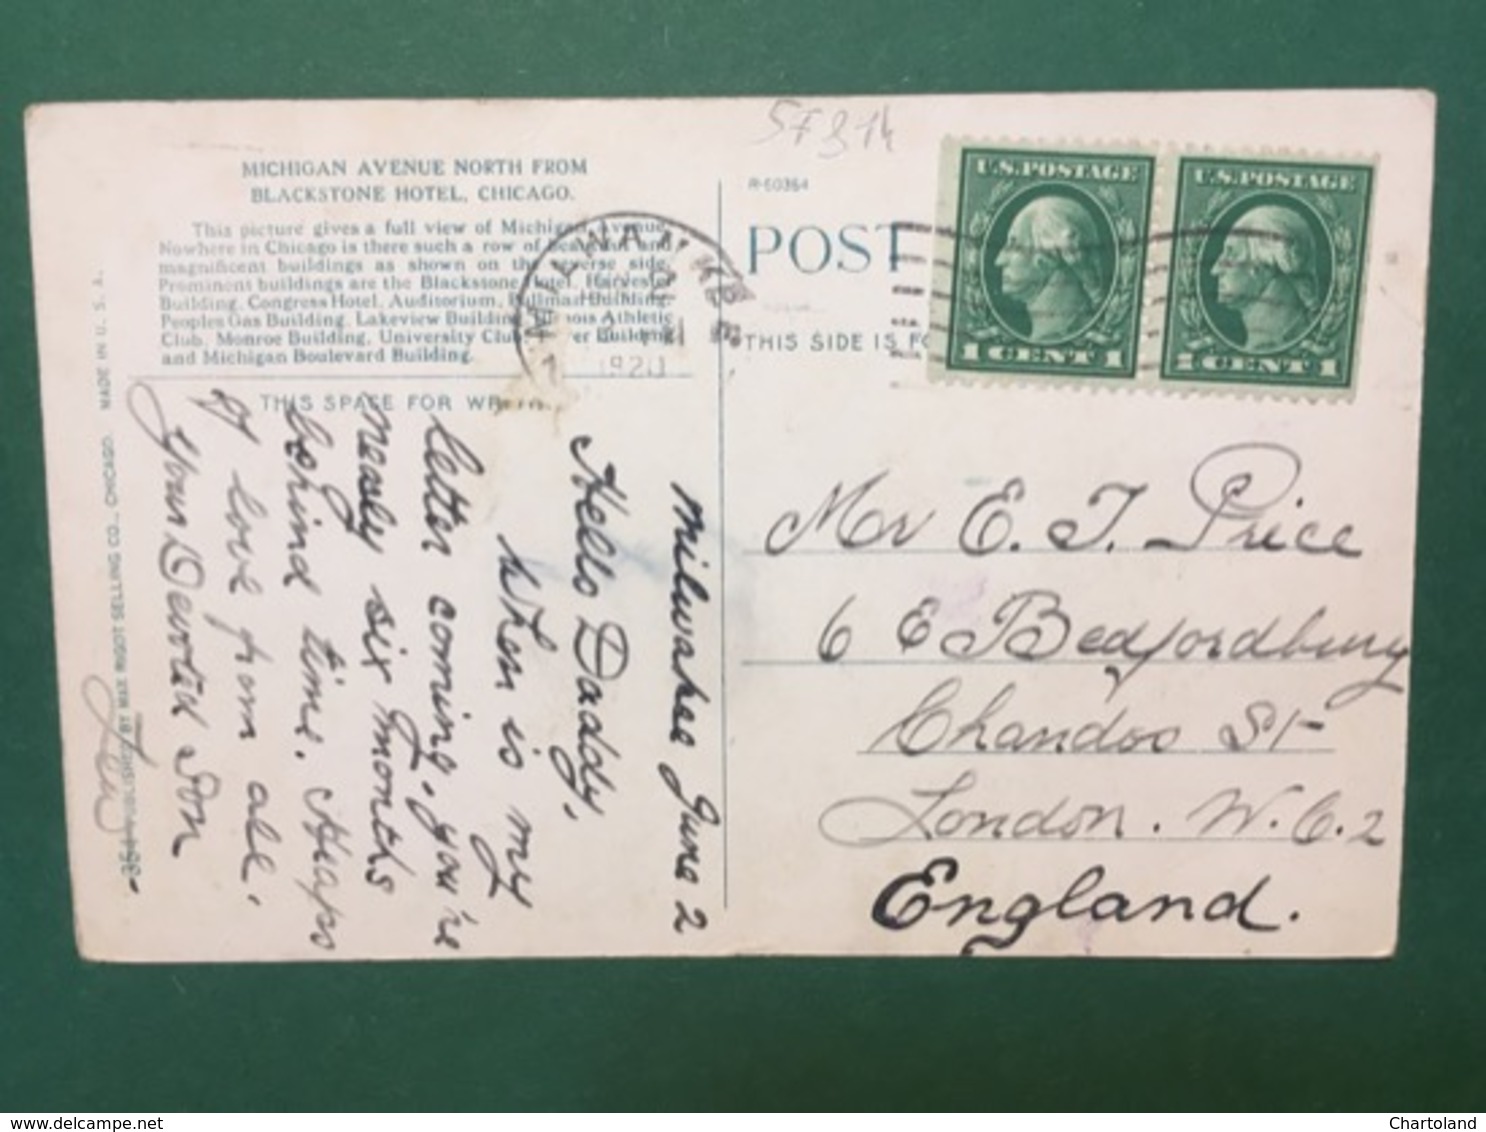 57314
MICHIGAN AVENUE NORTH FROM
BLACKSTONE HOTEL, CHICAGO.
This picture gives a full view of Michigan Avenue.
Nowhere in Chicago is there such a row of beautiful and
magnificent buildings as shown on the reverse side.
Prominent buildings are the Blackstone Hotel, Harvester
Building, Congress Hotel, Auditorium, Pullman Building,
Peoples Gas Building, Lakeview Building, Illinois Athletic
Club, Monroe Building, University Club, Tower Building
and Michigan Boulevard Building.
THIS SPACE FOR WRITING
MILWAUKEE
1920
R-60364
POST
THIS SIDE IS FO
U.S. POSTAGE
1 CENT 1
U.S. POSTAGE
1 CENT 1
Milwaukee June 2
Hello Daddy,
When is my
letter coming, you're
nearly six months
behind time. Heaps
of love from all.
Your Devoted Son
Mr E. J. Price
6 E Bedfordbury
Chandos St
London. W.C.2
England.
354-PUBLISHED BY MAX RIGOT SELLING CO., CHICAGO. MADE IN U. S. A.
delcampe.net
Chartoland